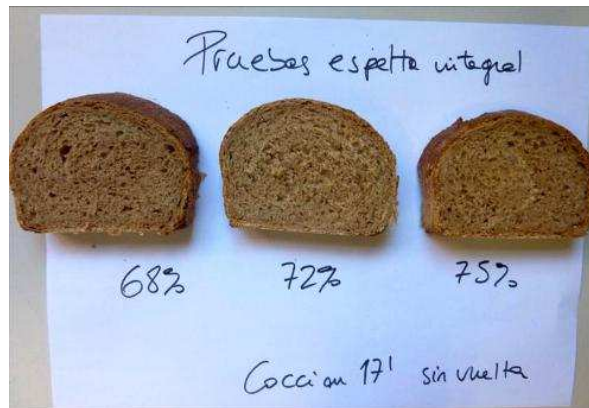 Pruebas espelta integral
68% 72% 75%
Cocción 17' sin vuelta